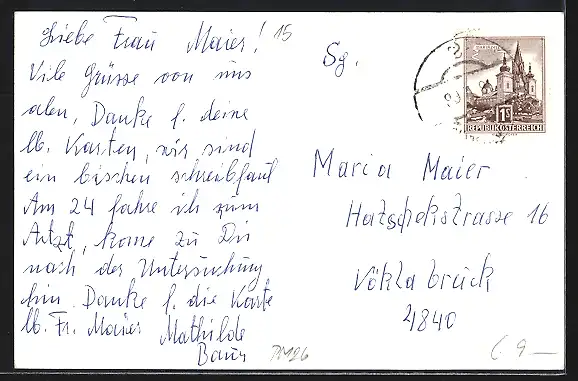 Liebe Frau Maier! 15
Vile Grüsse von uns
alen, Danke f. deine
lb. Karten, wir sind
ein bischen schreibfaul
Am 24 fahre ich zum
Artzt, kome zu Dir
nach der Untersuchung
hin. Danke f. die Karte
lb. Fr. Maier Mathilde
Baur
Sg.
MARIAZELL
1S
REPUBLIK ÖSTERREICH
Maria Maier
Hatschekstrasse 16
Vöklabruck
4840
9—